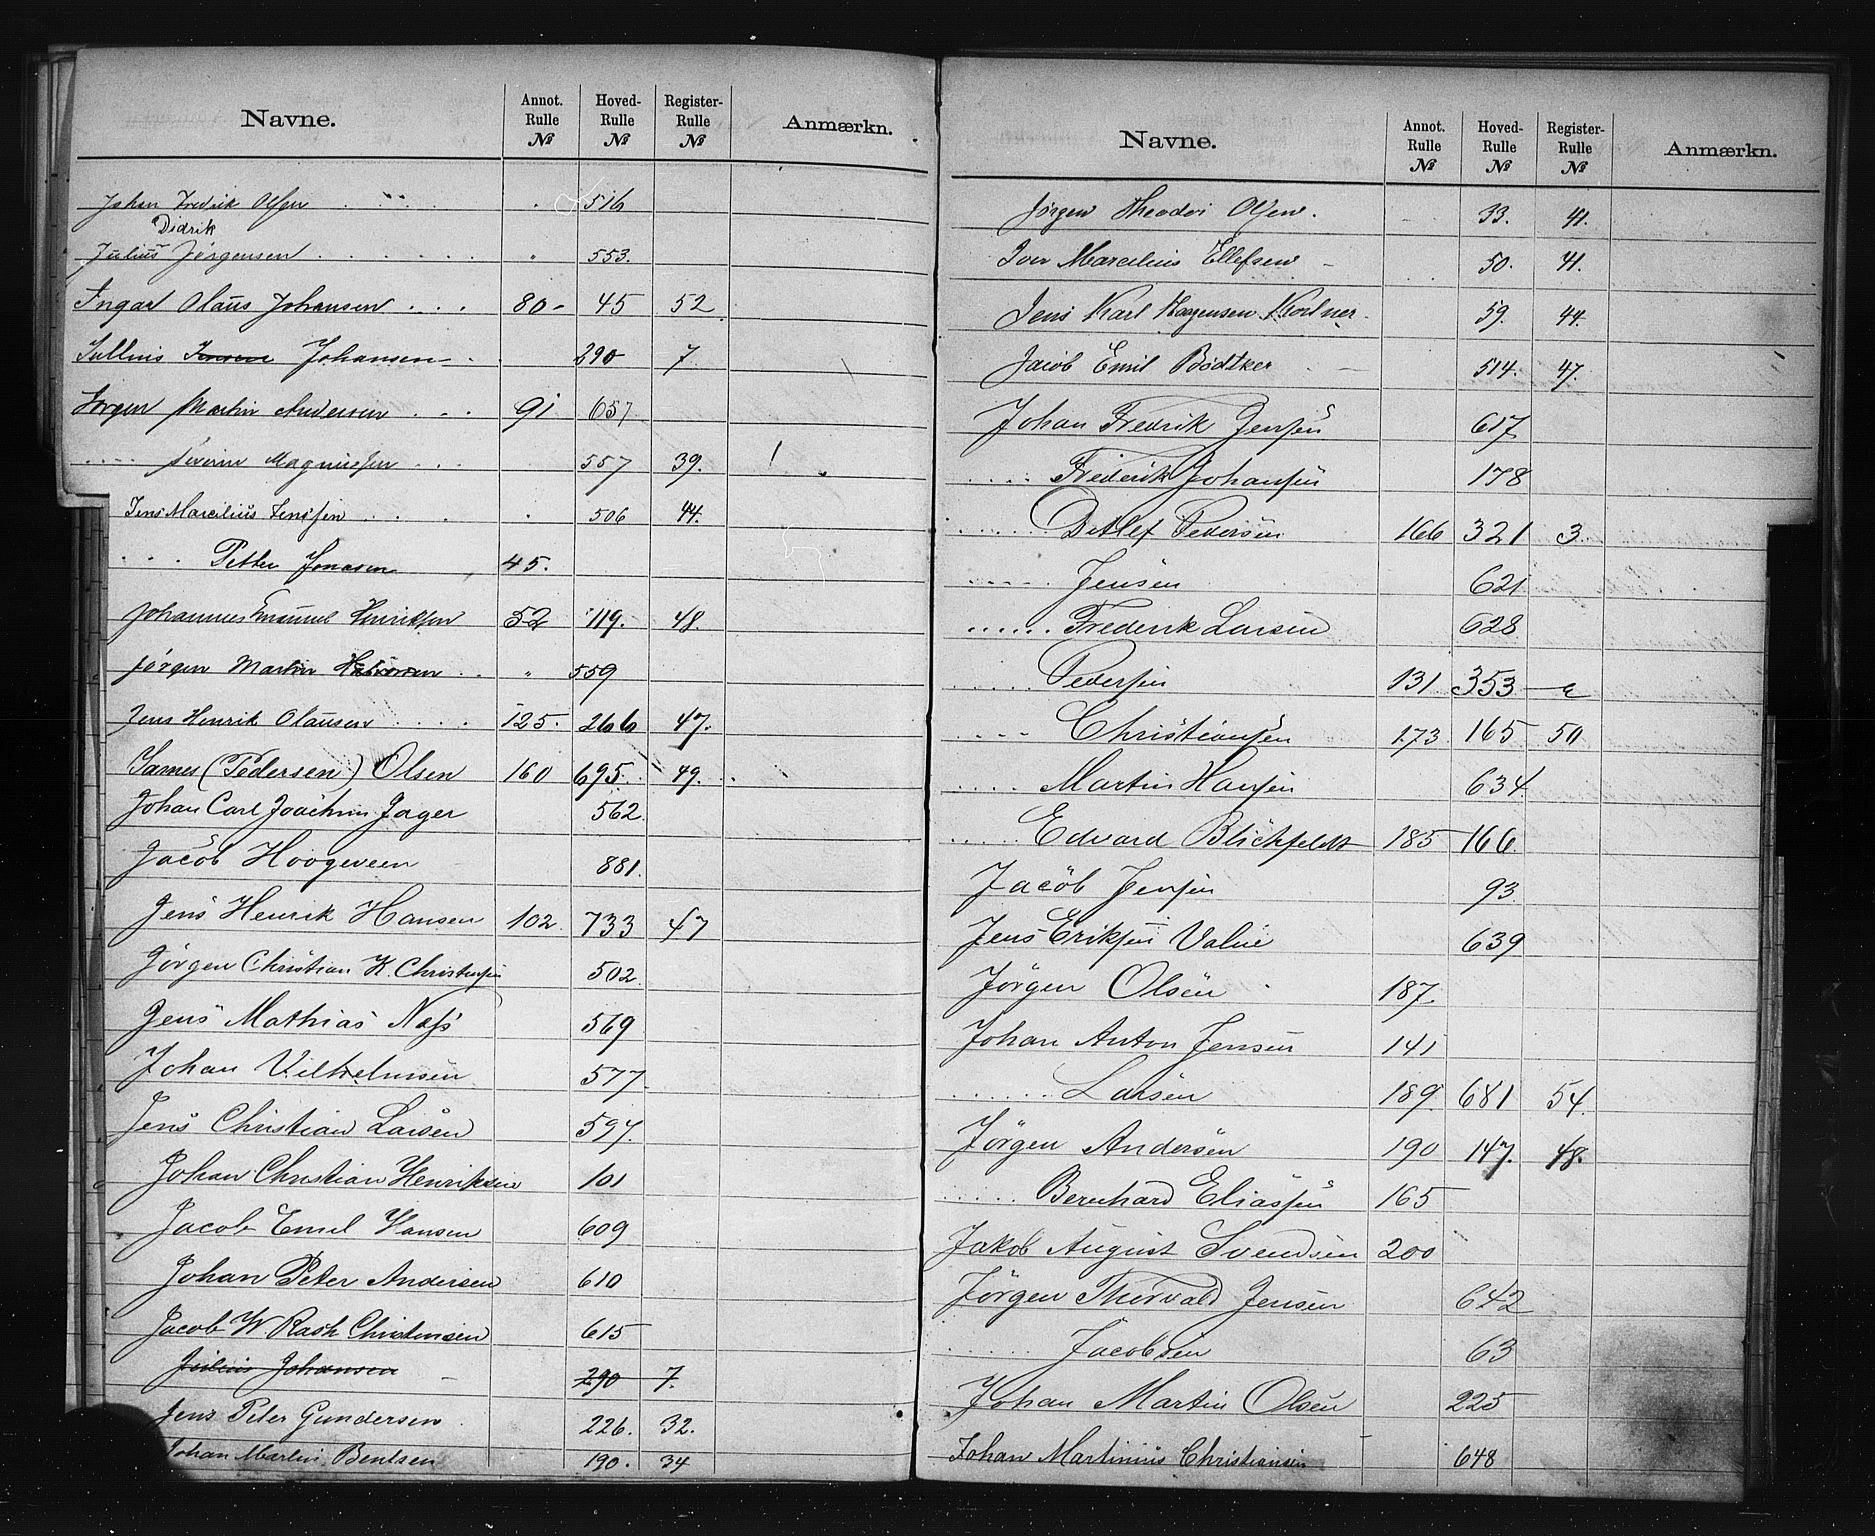 Navne. Annot. Rulle № Hoved-Rulle № Register-Rulle № Anmærkn.
Johan Fredrik Olsen . . . " 516
Didrik
Julius Jørgensen . . . . . . . " 553.
Ingar Olaus Johansen . . . 80- 45 52
Jullius Jensen Johansen - . 290 7.
Jørgen Martin Andersen . . . 91 657.
. . . . Severin Magnussen . . . 557 39.
Jens Marcilius Jenssen . . . . 506 44.
. . . Petter Jonesen 45.
Johannes Emanuel Henriksen 52 119. 48.
Jørgen Martin Halvorsen . . " 559
Jens Henrik Olausen . . . . 125. 266 47.
James (Pedersen) Olsen 160 695. 49.
Johan Carl Joachim Jager 562.
Jacob Hoogeveen 881.
Jens Henrik Hansen 102. 733 47
Jørgen Christian K. Christensen 502.
Jens Mathias Næss 569
Johan Vilhelmsen 577
Jens Christian Larsen 597.
Johan Christian Henriksen 101
Jacob Emil Hansen 609
Johan Peter Andersen 610
Jacob W Rash Christensen 615
Julius Johansen 290 7.
Jens Peter Gundersen 226. 32.
Johan Martin Bentsen 190. 34
Navne. Annot. Rulle № Hoved-Rulle № Register-Rulle № Anmærkn.
Jørgen Theodor Olsen. 33. 41.
Iver Marcelius Ellefsen - 50. 41.
Jens Karl Haagensen Kortner. 59. 44.
Jacob Emil Bødtker 514. 47.
Johan Fredrik Jensen 617
. . . . Frederik Johansen 178
. . . . . Detlef Pedersen 166 321 3
. . . . . Jensen 621
. . . . . . Frederik Larsen 628
. . . . . Pedersen 131 353
. . . . Christiansen 173 165 50
. . . . . Martin Hansen 634
. . . . . . Edvard Blichfeldt 185 166.
Jacob Jensen 93
Jens Eriksen Value 639
Jørgen Olsen 187.
Johan Anton Jensen 141
. . . . . . Larsen 189. 681 54.
Jørgen Andersen 190 147. 48.
. . . . . Bernhard Eliassen 165
Jakob August Svendsen 200
Jørgen Thorvald Jensen 642
. . . . . . Jacobsen 63
Johan Martin Olsen 225
Johan Martinius Christiansen 648